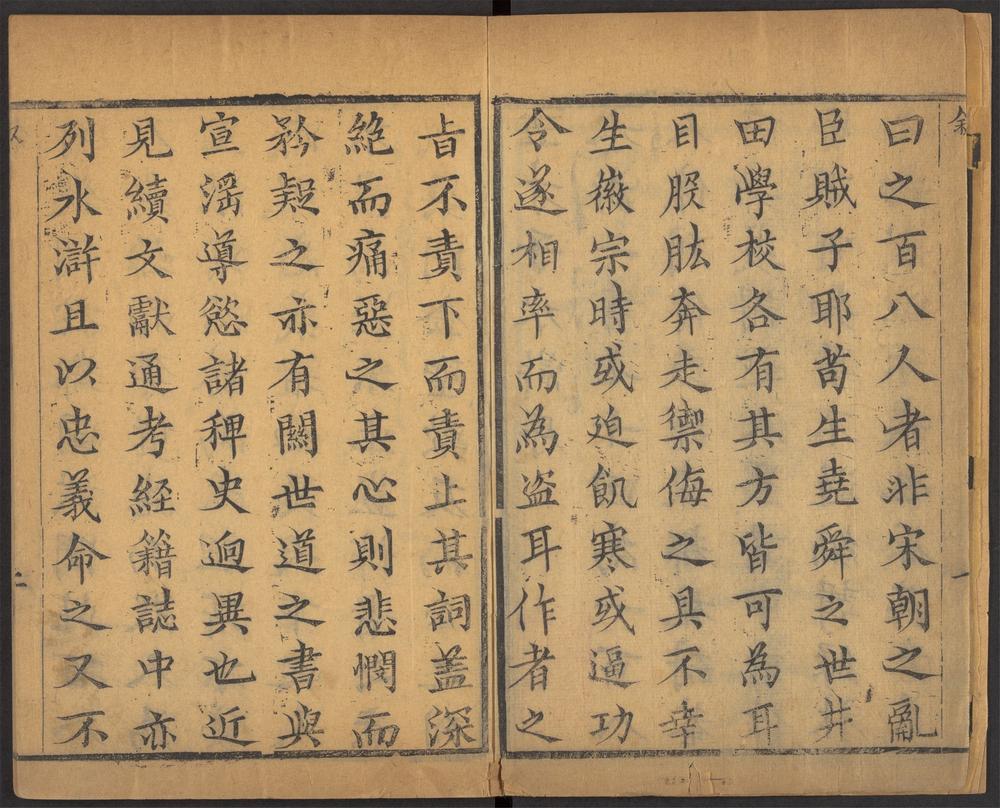 叙
一
曰之百八人者非宋朝之亂
臣賊子耶苟生堯舜之世井
田學校各有其方皆可為耳
目股肱奔走禦侮之具不幸
生徽宗時或迫飢寒或逼功
令遂相率而為盗耳作者之
㫖不責下而責上其詞盖深
絶而痛惡之其心則悲憫而
矜疑之亦有關世道之書與
宣滛導慾諸稗史迥異也近
見續文獻通考経籍誌中亦
列水滸且以忠義命之又不
二